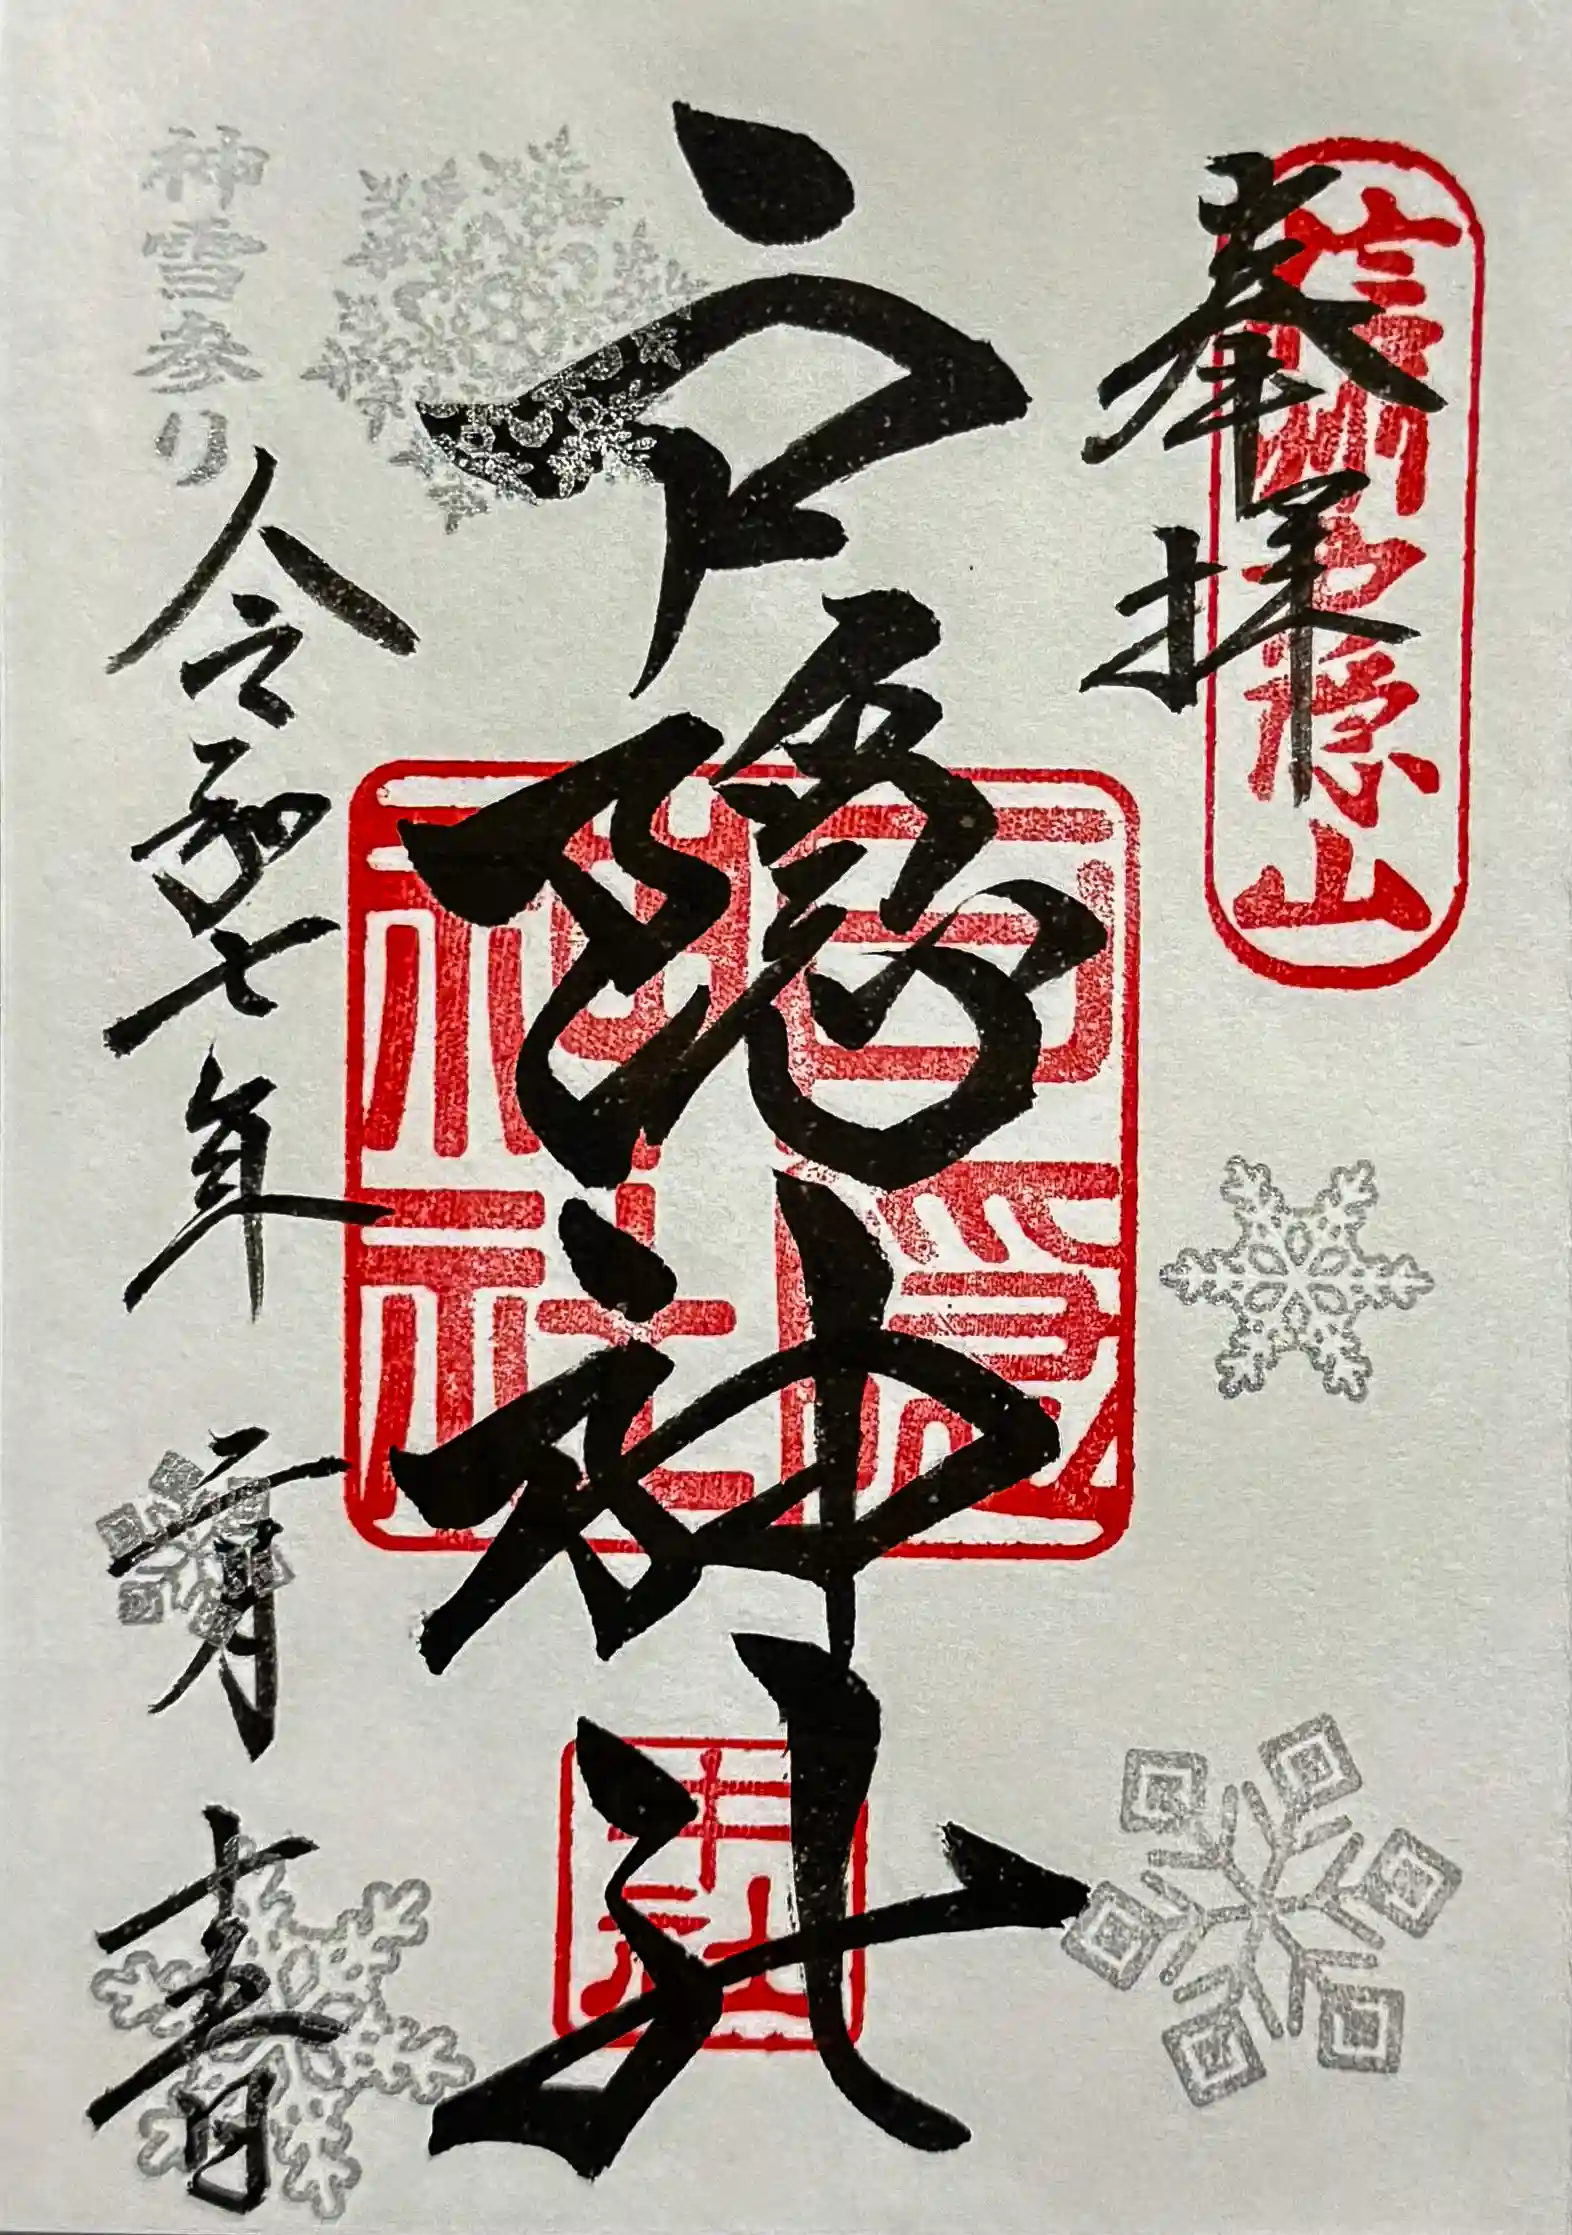 奉拝
信州戸隠山
戸隠神社
戸隠神社
中社
神雪参り
令和七年二月十五日